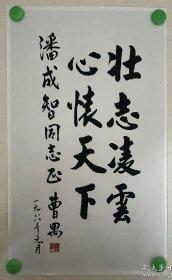 壮志凌雲
心懷天下
潘成智同志正 曹禺
一九八六年元月